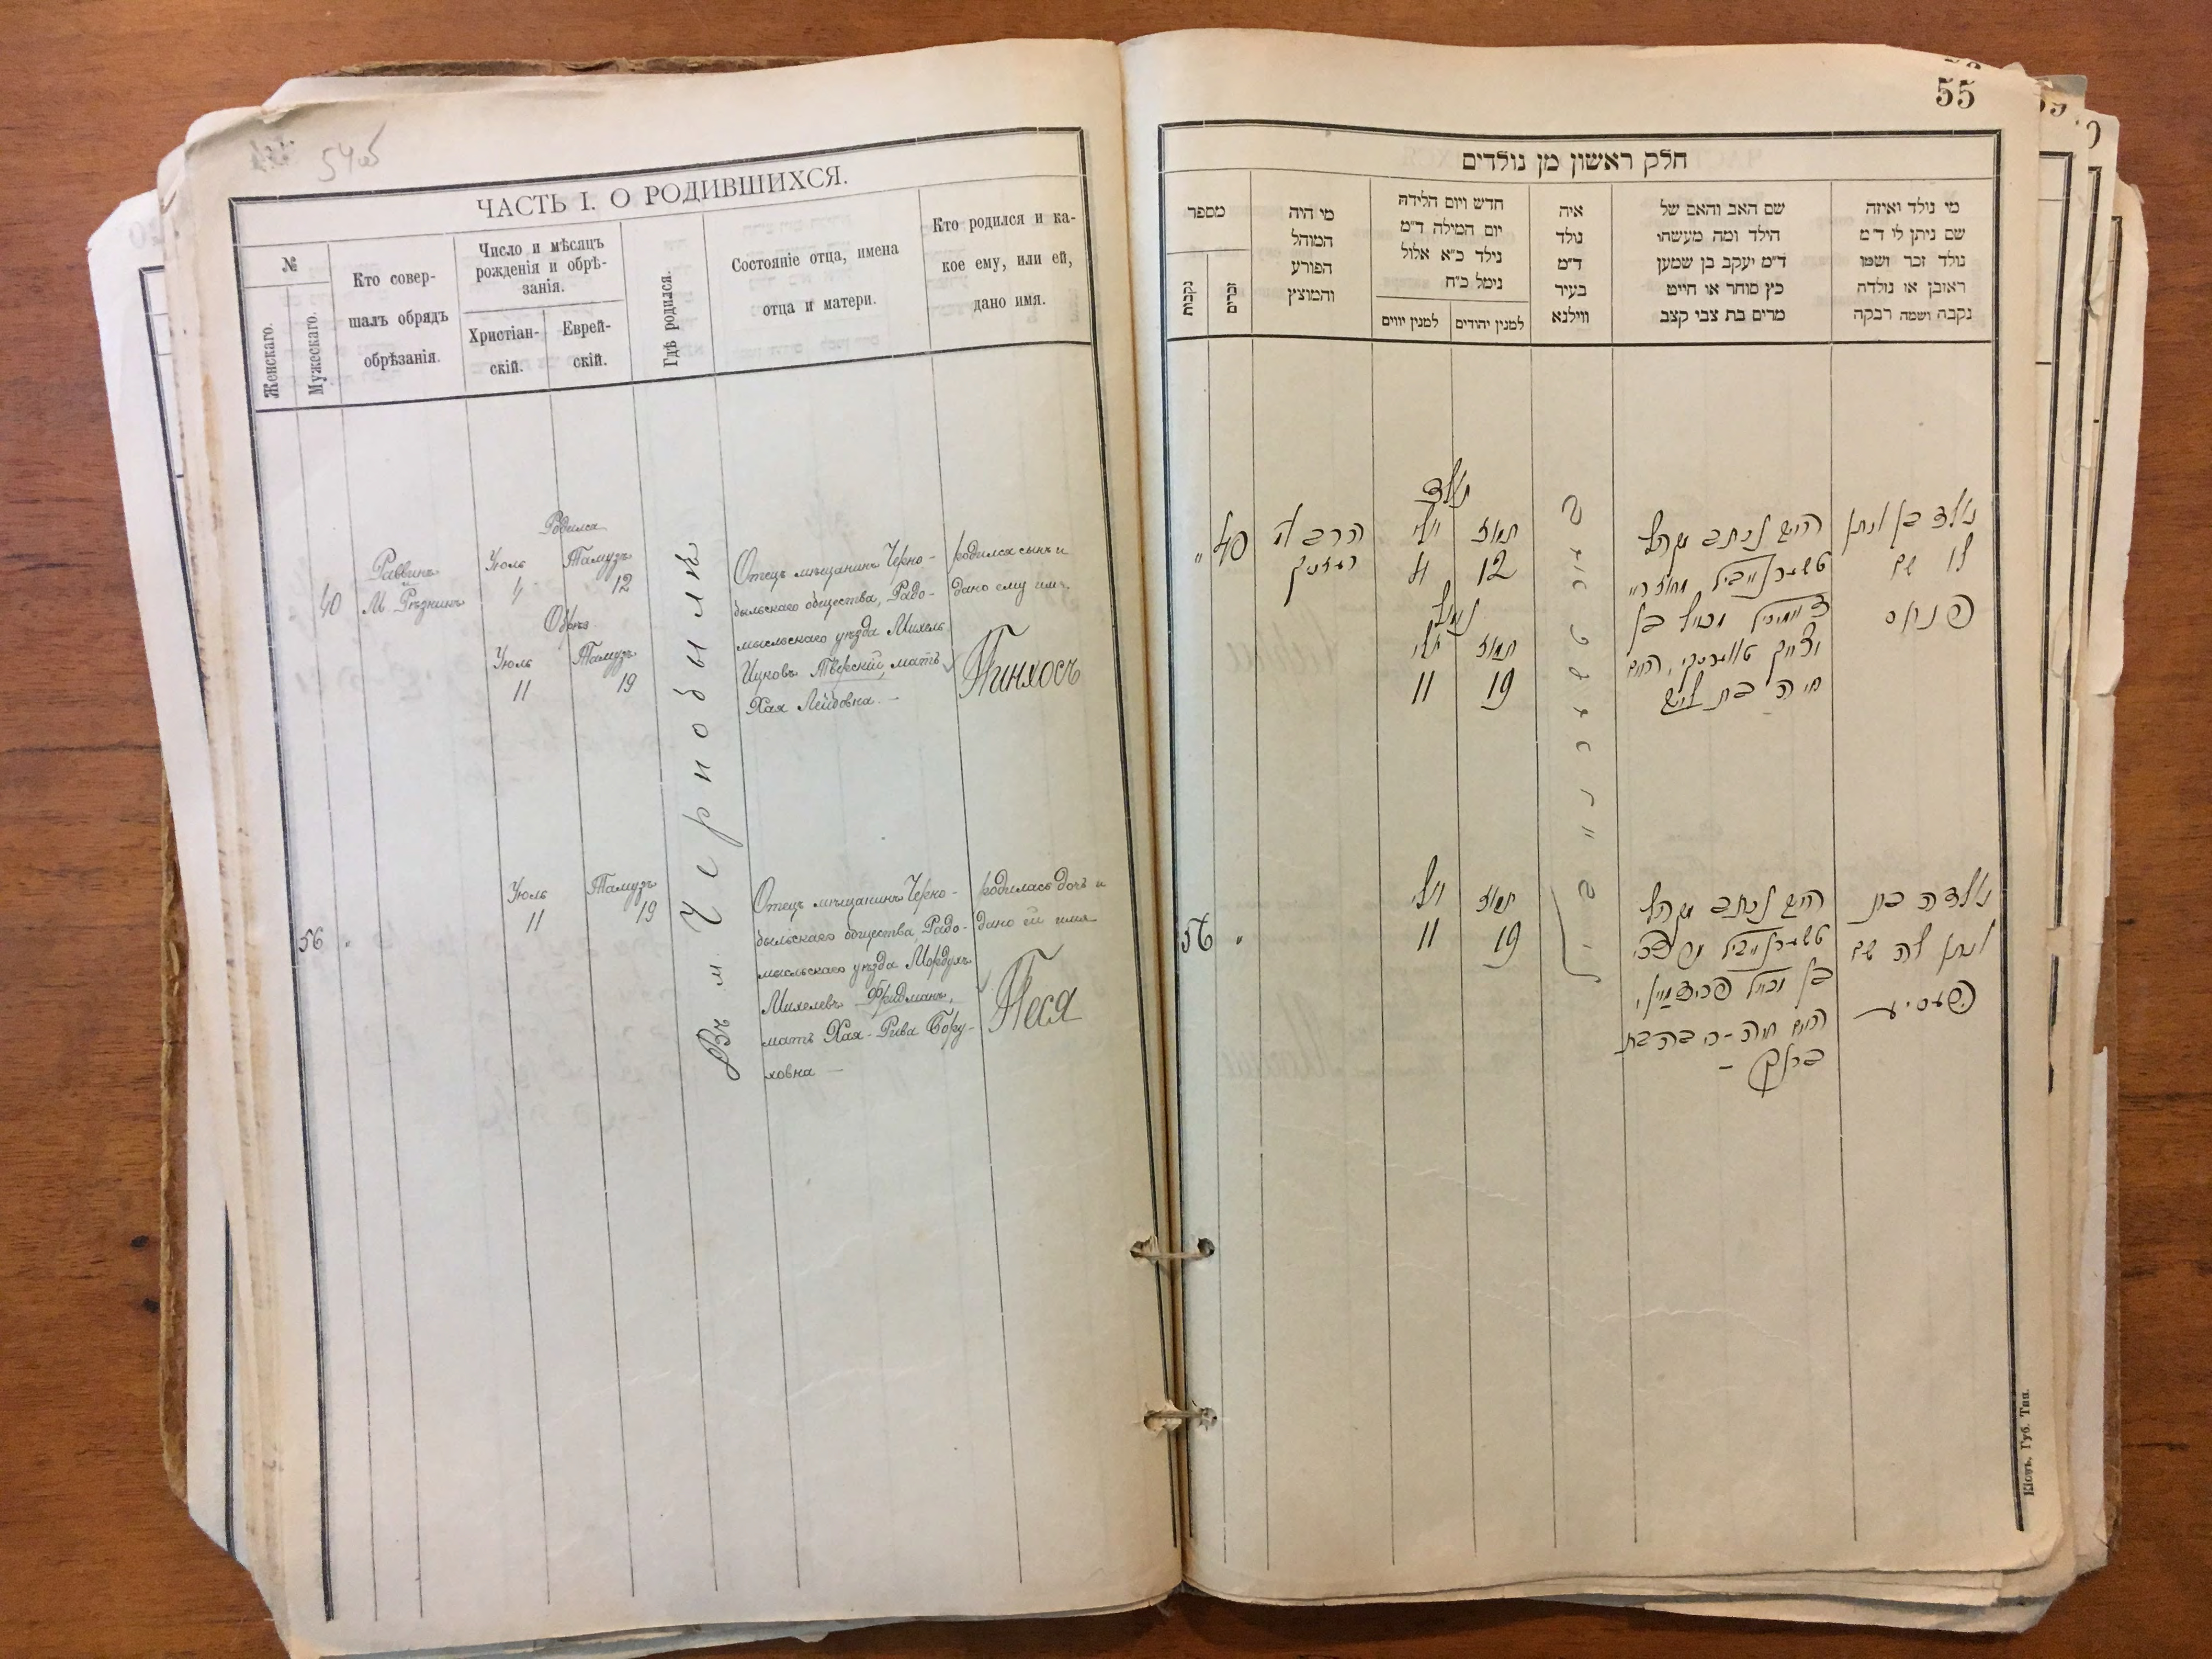 54об
ЧАСТЬ I. О РОДИВШИХСЯ.
№
Женскаго.
Мужескаго.
Кто совер-
шалъ обрядъ
обрѣзанія.
Число и мѣсяцъ
рожденія и обрѣ-
занія.
Христіан-
скій.
Еврей-
скій.
Гдѣ родился.
Состояніе отца, имена
отца и матери.
Кто родился и ка-
кое ему, или ей,
дано имя.
40
Раввинъ
М. Рѣзникъ
Родился
Іюль Тамузъ
4 12
Обрѣз.
Іюль Тамузъ
11 19
Въ м Чернобылѣ
Отецъ мѣщанинъ Черно-
быльскаго общества, Радо-
мысльскаго уѣзда Михель
Ицковъ Тверскій, мать
Хая Лейбовна —
родился сынъ и
дано ему им.
Пинхосъ
56 "
Іюль Тамузъ
11 19
Отецъ мѣщанинъ Черно-
быльскаго общества, Радо-
мысльскаго уѣзда Мордухъ
Михелевъ Фридманъ,
мать Хая-Рива Бору-
ховна —
родилась дочь и
дано ей имя
Песя
55
חלק ראשון מן נולדים
מספר
נקבות
זכרים
מי היה
המוהל
הפורע
והמוצץ
חדש ויום הלידה
יום המילה ד״מ
נילד כ״א אלול
נימל כ״ח
למנין יווים
למנין יהודים
איה
נולד
ד״מ
בעיר
ווילנא
שם האב והאם של
הילד ומה מעשהו
ד״מ יעקב בן שמעון
כץ סוחר או חייט
מרים בת צבי קצב
מי נילד ואיזה
שם ניתן לו ד״מ
נולד זכר ושמו
ראובן או נולדה
נקבה ושמה רבקה
" 40
נולד
יולי תמוז
4 12
נימול
יולי תמוז
11 19
נולד בן ונתן
לו שם
פנחס
56 "
יולי תמוז
11 19
נולדה בת
ונתן לה שם
פעסיע
Кіевъ, Губ. Тип.